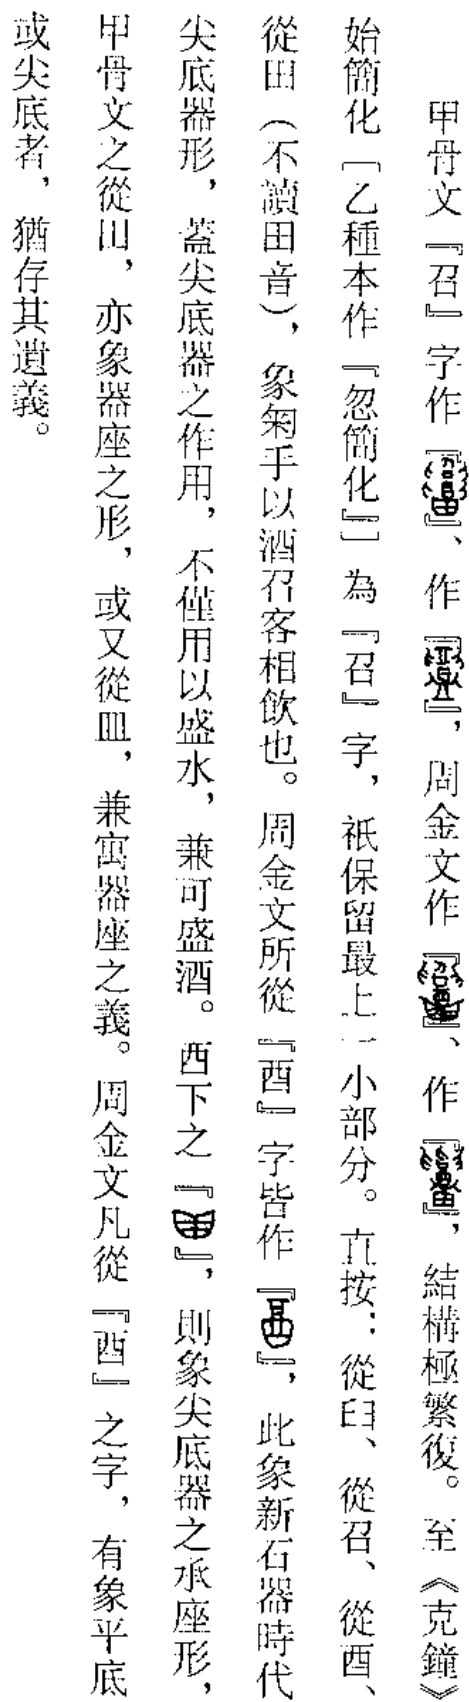 甲骨文『召』字作『』、作『』，周金文作『』、作『』，結構極繁復。至《克鐘》
始簡化〔乙種本作『忽簡化』〕為『召』字，祇保留最上一小部分。直按：從𦥑、從召、從酉、
從田（不讀田音），象匊手以酒召客相飲也。周金文所從『酉』字皆作『』，此象新石器時代
尖底器形，蓋尖底器之作用，不僅用以盛水，兼可盛酒。酉下之『』，則象尖底器之承座形，
甲骨文之從田，亦象器座之形，或又從皿，兼寓器座之義。周金文凡從『酉』之字，有象平底
或尖底者，猶存其遺義。